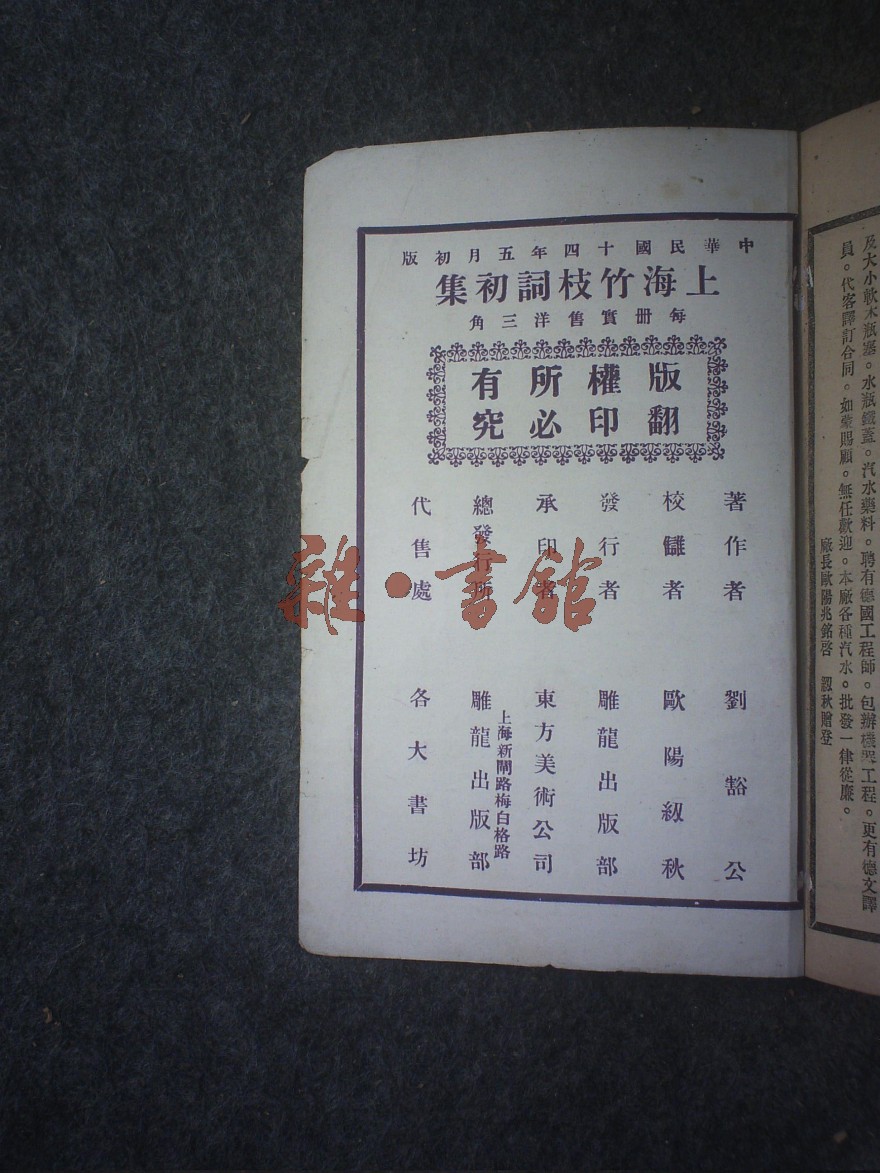 中華民國十四年五月初版
上海竹枝詞初集
每册實售洋三角
版權所有
翻印必究
著作者 劉豁公
校讎者 歐陽級秋
發行者 雕龍出版部
承印者 東方美術公司
總發行所 上海新閘路梅白格路 雕龍出版部
代售處 各大書坊
雜·書館
及大小軟木瓶塞。水瓶鐵蓋。汽水藥料。聘有德國工程師。包辦機器工程。更有德文譯
員。代客譯訂合同。如蒙賜顧。無任歡迎。本廠各種汽水。批發一律從廉。
廠長歐陽兆銘啓 級秋贈登